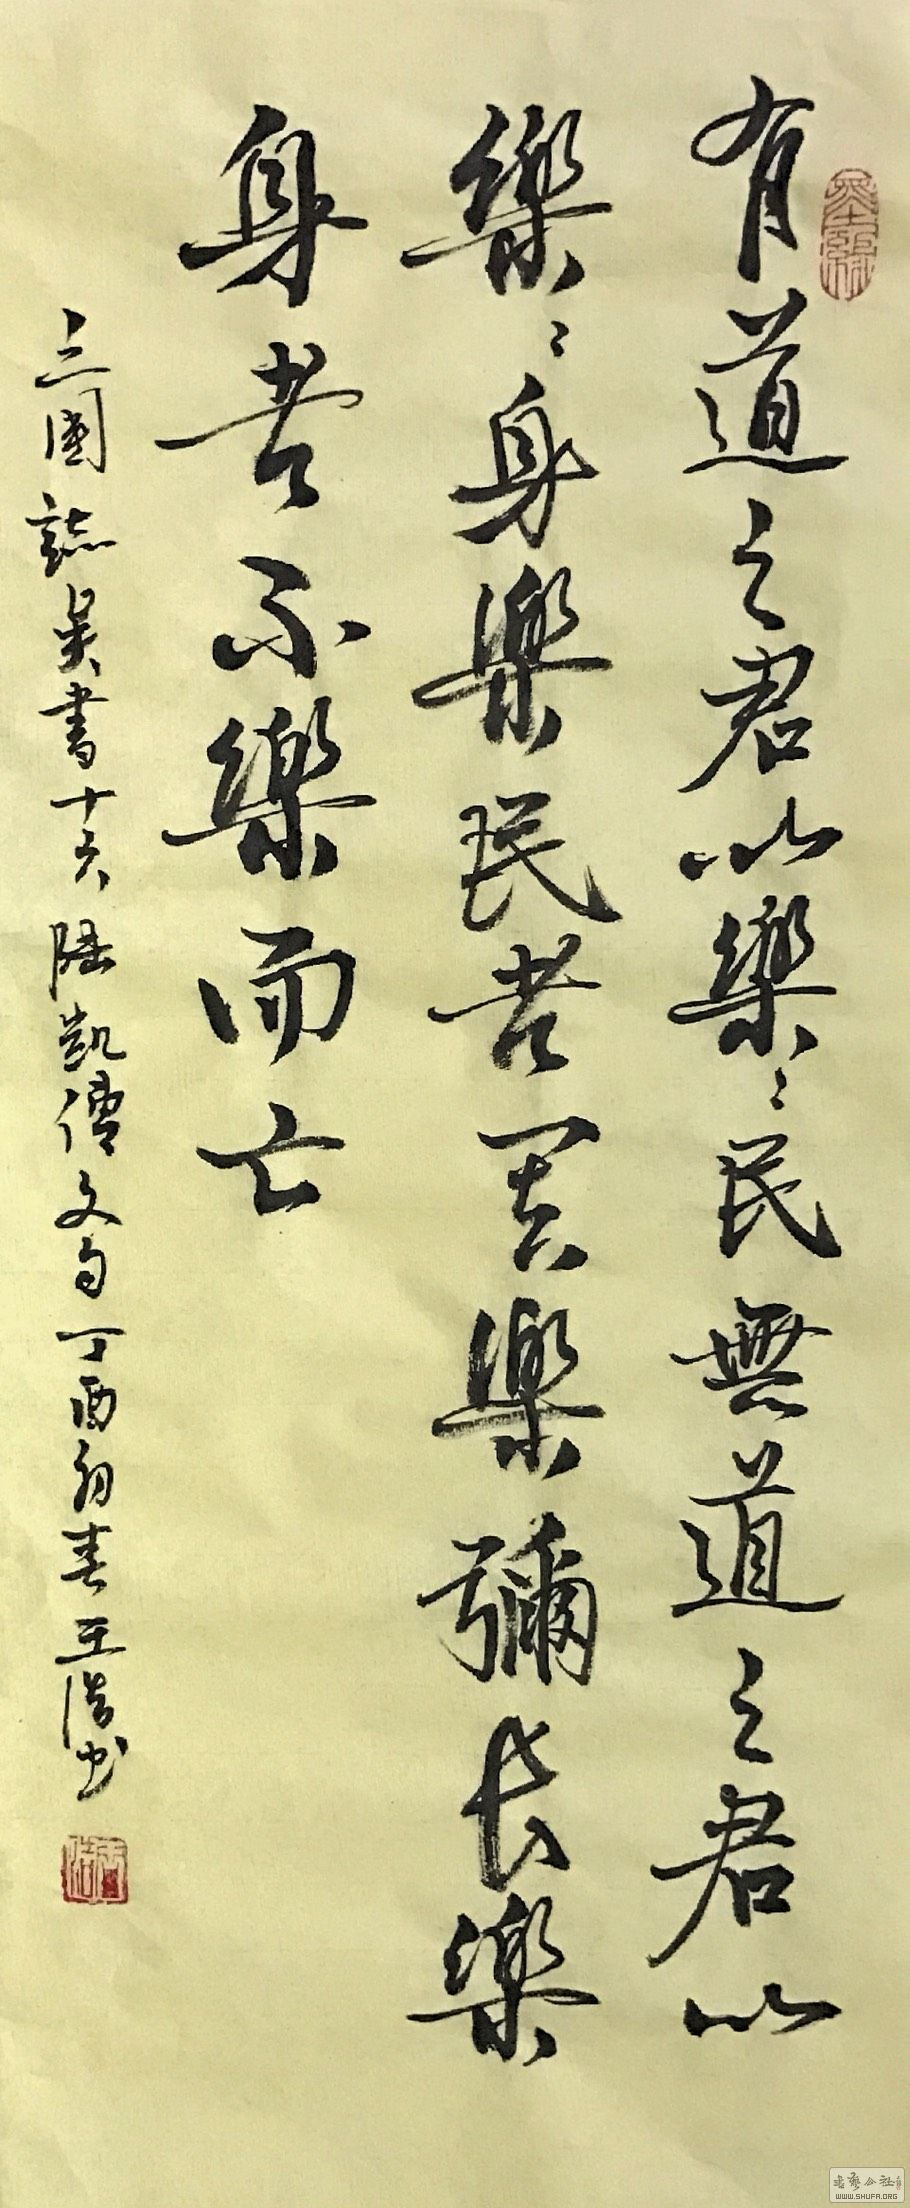 有道之君以樂〻民無道之君以
樂〻身樂民者其樂彌長樂
身者不樂而亡
三國誌吳書十六陸凱傳文句丁酉初春王浩书
王浩
書藝公社
WWW.SHUFA.ORG